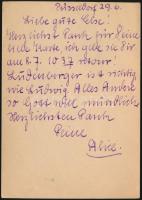 Düsseldorf 29.6.
Liebe gute Else!
Herzlichst Dank für Deine
liebe Karte ich gebe sie Dir
am 8.7. 10.37 retour!
Ludenberger ist richtig
wie Ludwig. Alles Andere
so Gott will mündlich
Herzlichsten Dank
Deine
Alice.